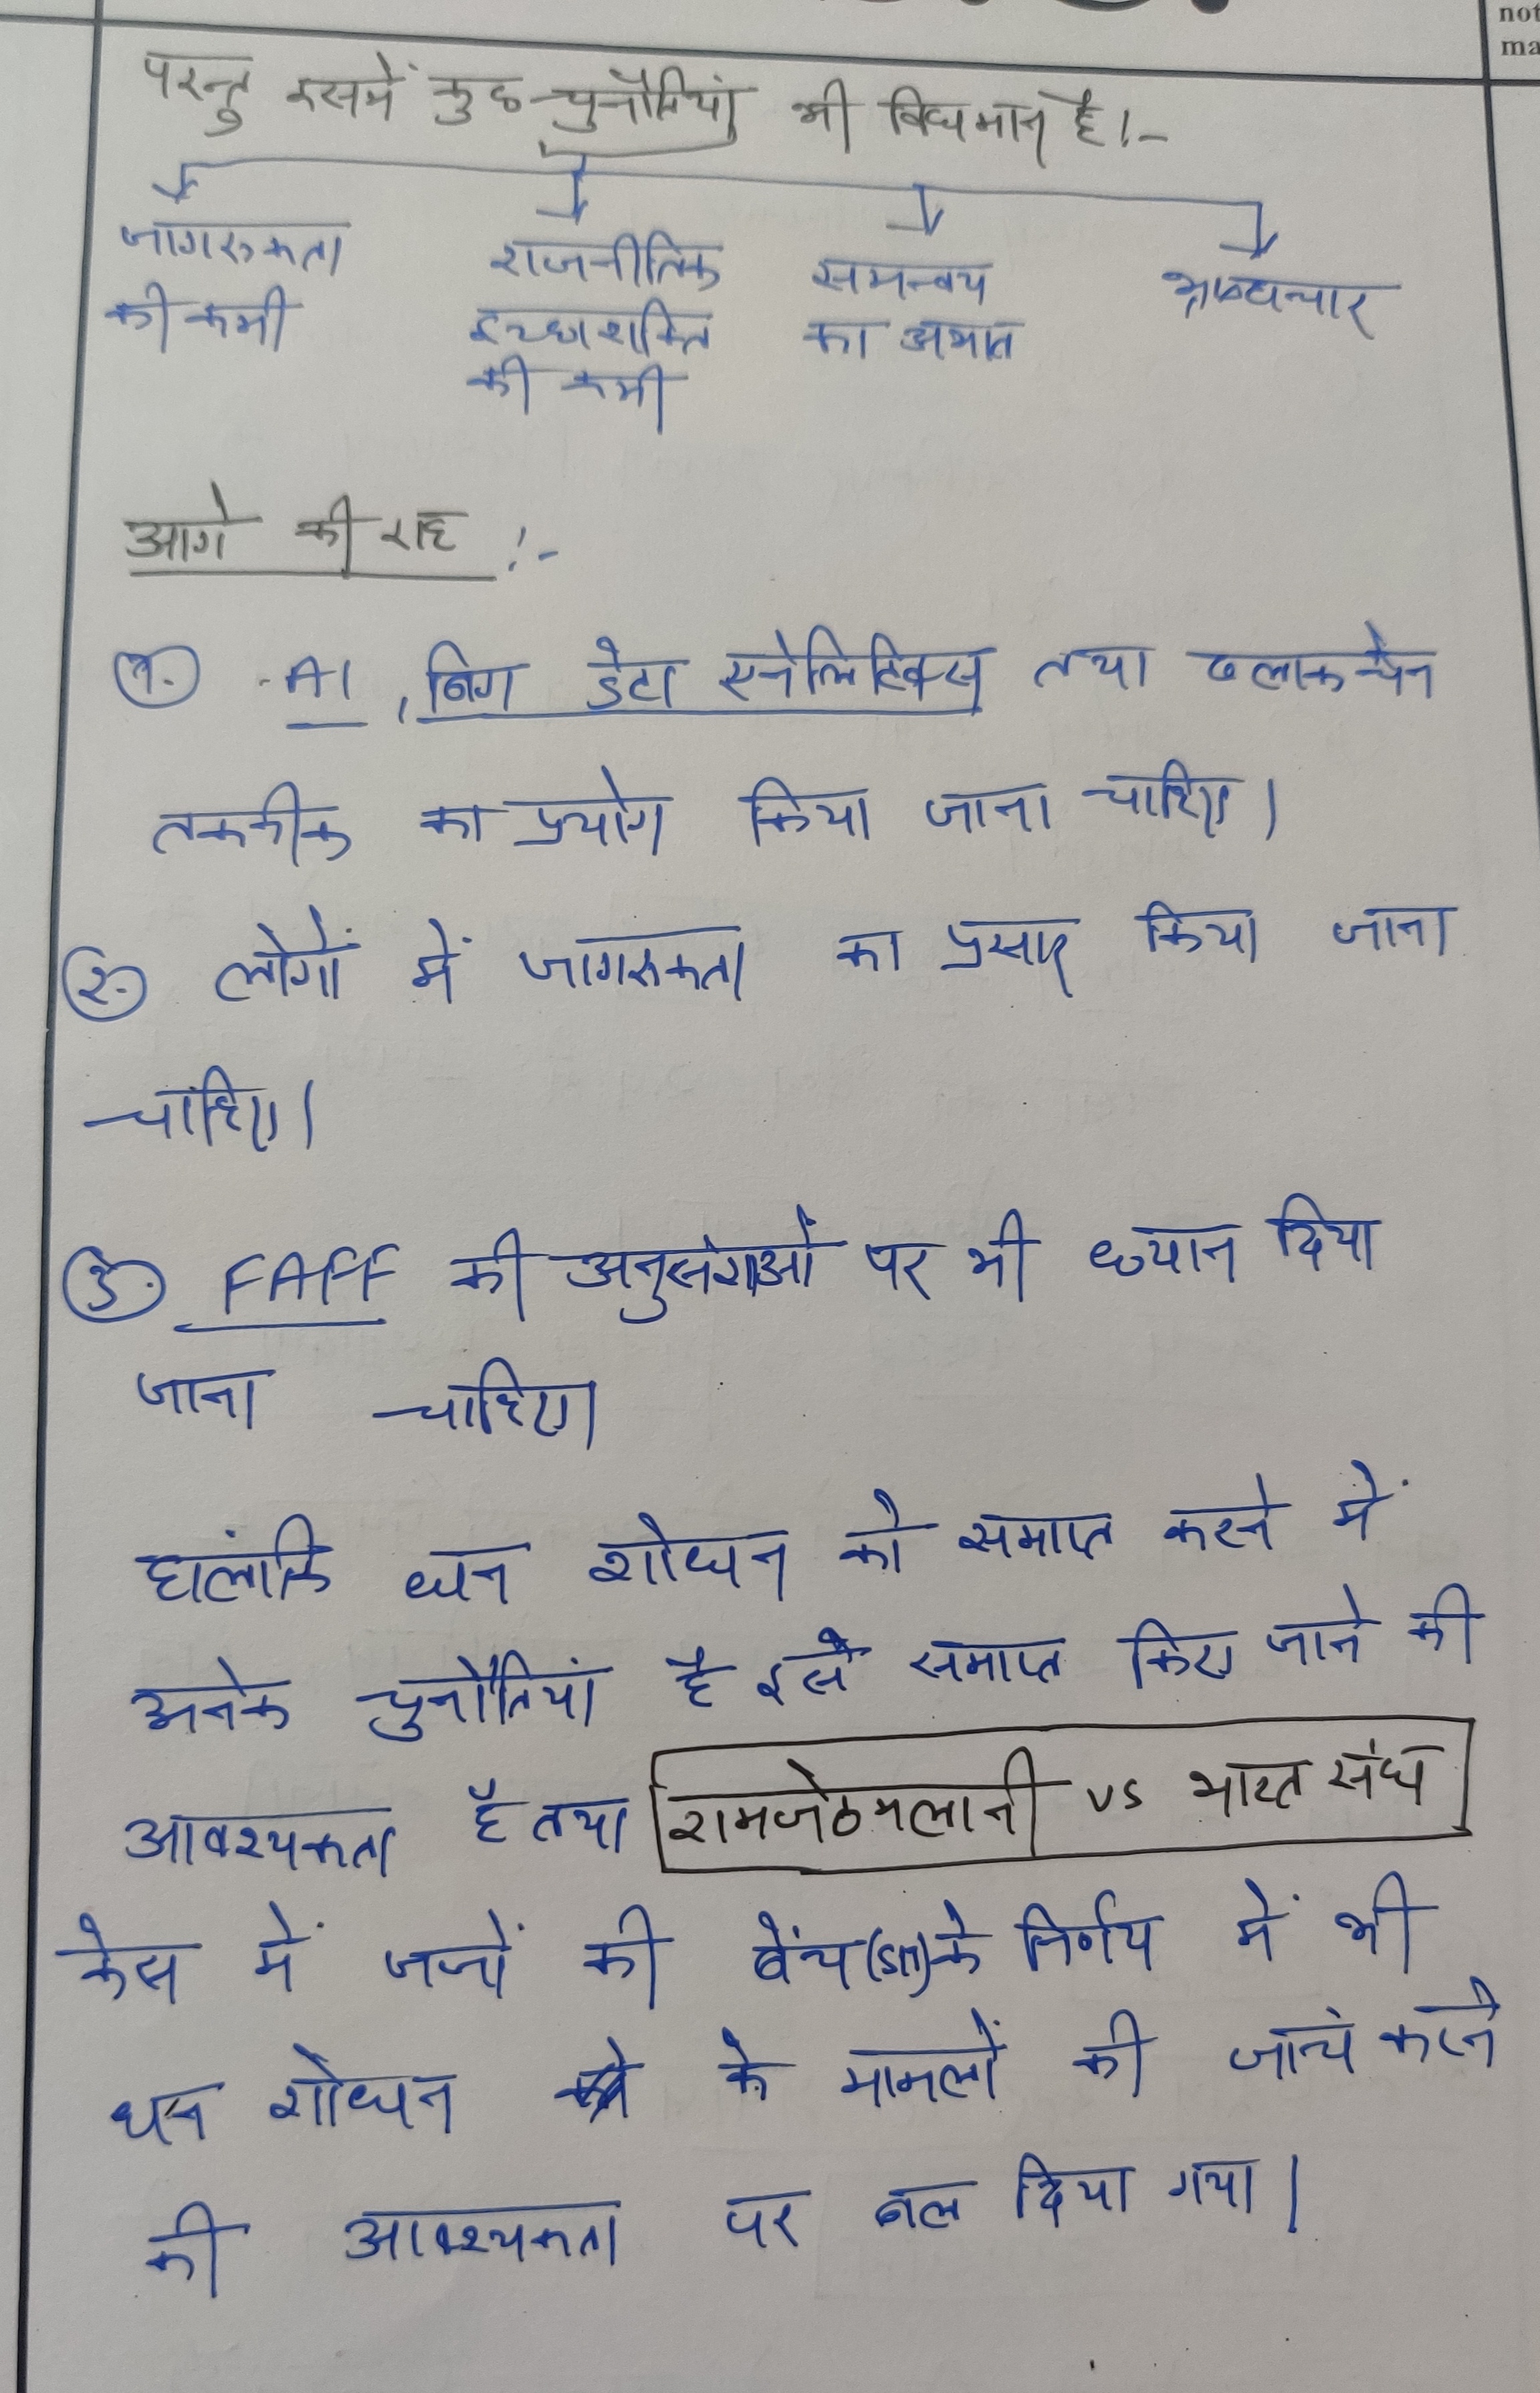 not
ma
परन्तु इसमें कुछ चुनौतियां भी विद्यमान है।-
जागरुकता
की कमी
राजनीतिक
इच्छाशक्ति
की कमी
समन्वय
का अभाव
भ्रष्टाचार
आगे की राह :-
१. AI, बिग डेटा एनेलिटिक्स तथा ब्लाकचेन
तकनीक का प्रयोग किया जाना चाहिए।
२. लोगों में जागरुकता का प्रसार किया जाना
चाहिए।
३. FATF की अनुसंशाओं पर भी ध्यान दिया
जाना चाहिए।
हालांकि धन शोधन को समाप्त करने में
अनेक चुनौतियां है इसे समाप्त किए जाने की
आवश्यकता है तथा रामजेठमलानी vs भारत संघ
केस में जजों की बेंच (SIT) के निर्णय में भी
धन शोधन के मामलों की जांच करने
की आवश्यकता पर बल दिया गया।